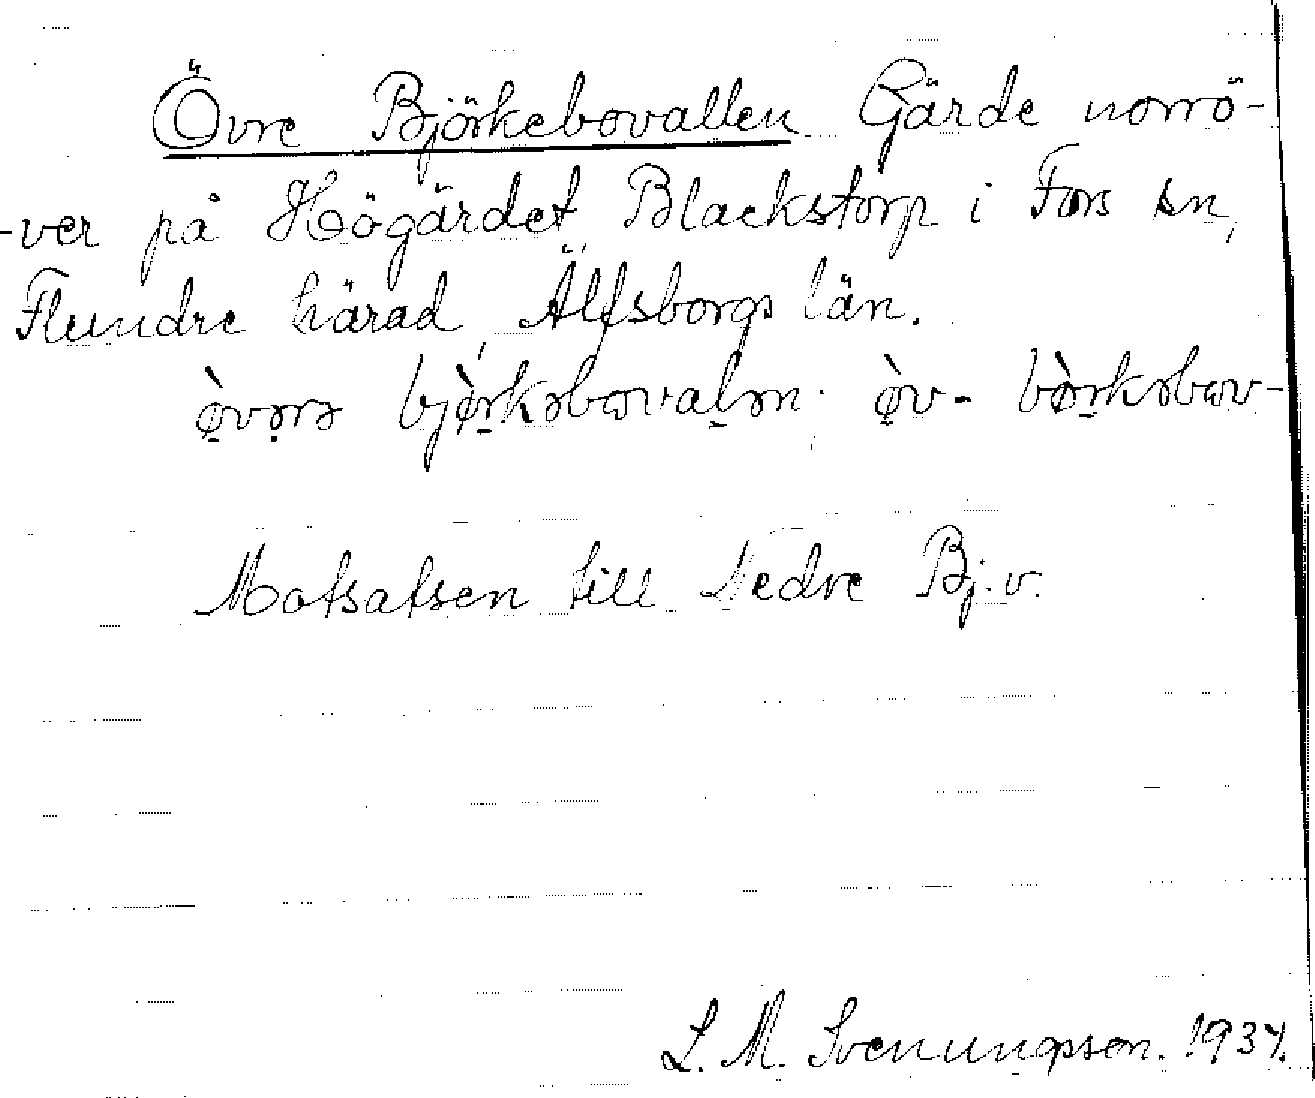 Övre Björkebovallen Gärde norrö-
-ver på Högärdet Blackstorp i Fors sn,
Flundre härad, Älfsborgs län.
Motsatsen till Nedre Bj.v.
L. M. Svenungsson. 1937.